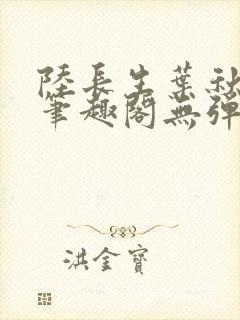 陸長生葉秋
筆趣閣無彈
洪金寶